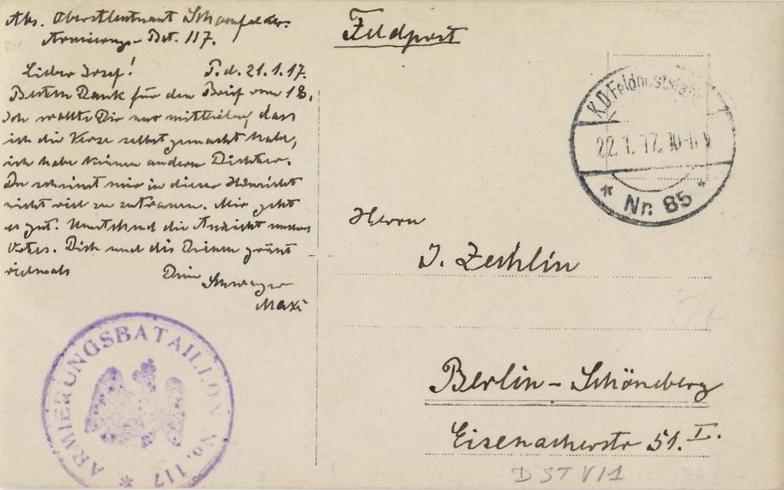 Abs. Oberstleutnant Schönfelder.
Armierungs-Bat. 117.
Lieber Josef! P.d. 21.1.17.
Besten Dank für den Brief vom 18.
Ich wollte Dir nur mitteilen, dass
ich die Verse selbst gemacht habe,
ich habe keinen andern Dichter.
Du scheinst mir in dieser Hinsicht
nicht viel zuzutrauen. Mir geht
es gut. Umstehend die Ansicht unsres
Dich und die Deinen grüsst
vielmals Dein
Schwager
Maxi
Feldpost
K.D. Feldpoststation
22.1.17. 10-11 V
* Nr. 85 *
Herrn
J. Zechlin
Berlin-Schöneberg
Eisenacherstr 51. I.
ARMIERUNGSBATAILLON No. 117 *
D ST VII